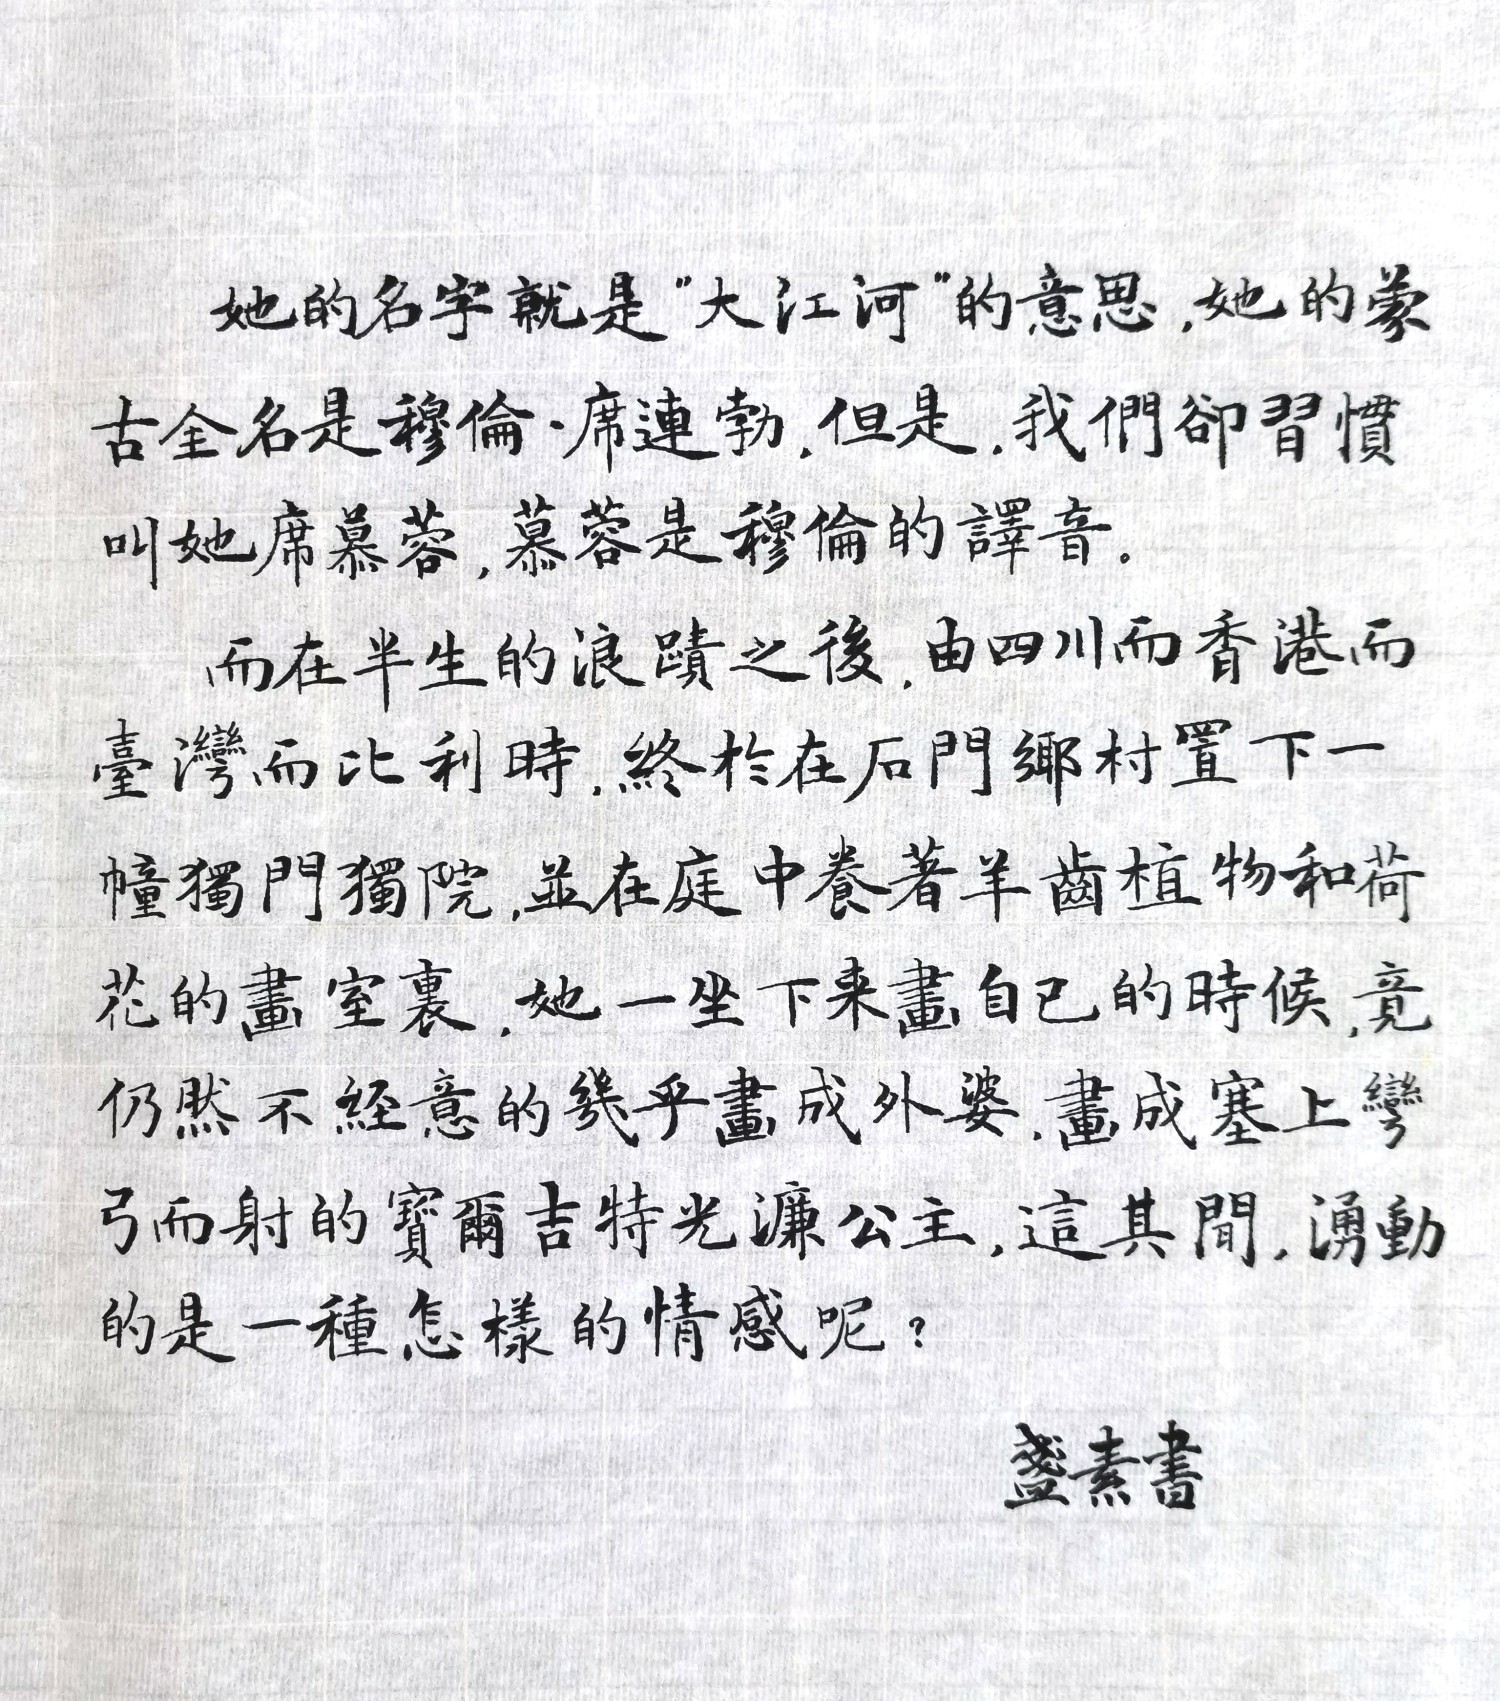 她的名字就是"大江河"的意思,她的蒙
古全名是穆倫·席連勃,但是,我們卻習慣
叫她席慕蓉,慕蓉是穆倫的譯音。
而在半生的浪蹟之後,由四川而香港而
臺灣而比利時,終於在石門鄉村置下一
幢獨門獨院,並在庭中養著羊齒植物和荷
花的畫室裏,她一坐下来畫自己的時候,竟
仍然不經意的幾乎畫成外婆,畫成塞上彎
弓而射的寶爾吉特光濂公主,這其間,湧動
的是一種怎樣的情感呢?
盞素書